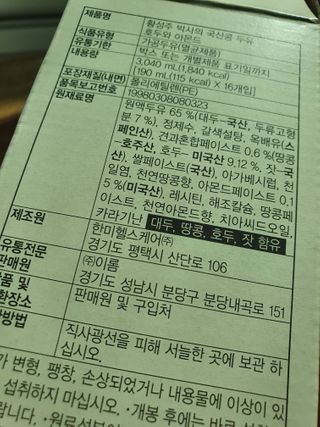 제품명 황성주 박사의 국산콩 두유
호두와 아몬드
식품유형 가공두유(멸균제품)
유통기한 박스 또는 개별제품 표기일까지
내용량 3,040 mL(1,840 kcal)
[190 mL(115 kcal) X 16개입]
포장재질(내면) 폴리에틸렌(PE)
품목보고번호 19980308080323
원재료명 원액두유 65 %(대두-국산, 두류고형
분 7 %), 정제수, 갈색설탕, 옥배유(스
페인산), 견과혼합페이스트 0.6 %(땅콩
-호주산, 호두- 미국산 9.12 %, 잣-국
산), 쌀페이스트(국산), 아가베시럽, 천
일염, 천연땅콩향, 아몬드페이스트 0.1
5 %(미국산), 레시틴, 해조칼슘, 땅콩페
이스트, 천연아몬드향, 치아씨드오일,
카라기난 대두, 땅콩, 호두, 잣 함유
제조원 한미헬스케어㈜
경기도 평택시 산단로 106
유통전문 ㈜이롬
판매원 경기도 성남시 분당구 분당내곡로 151
품 및 판매원 및 구입처
환장소
방법 직사광선을 피해 서늘한 곳에 보관 하
십시오.
가 변형, 팽창, 손상되었거나 내용물에 이상이 있
섭취하지 마십시오. ·개봉 후에는 바로
랍니다.